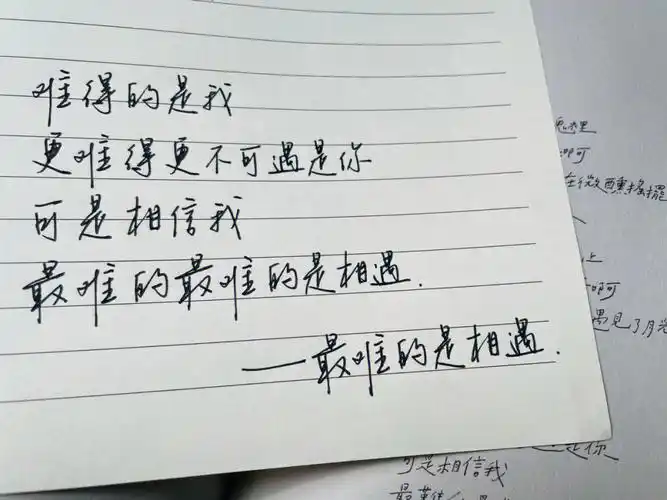 难得的是我
更难得更不可遇是你
可是相信我
最难的最难的是相遇.
——最难的是相遇.
裡
啊可
在微醺搖擺
上
啊可
遇見了月光
是你
可是相信我
最難